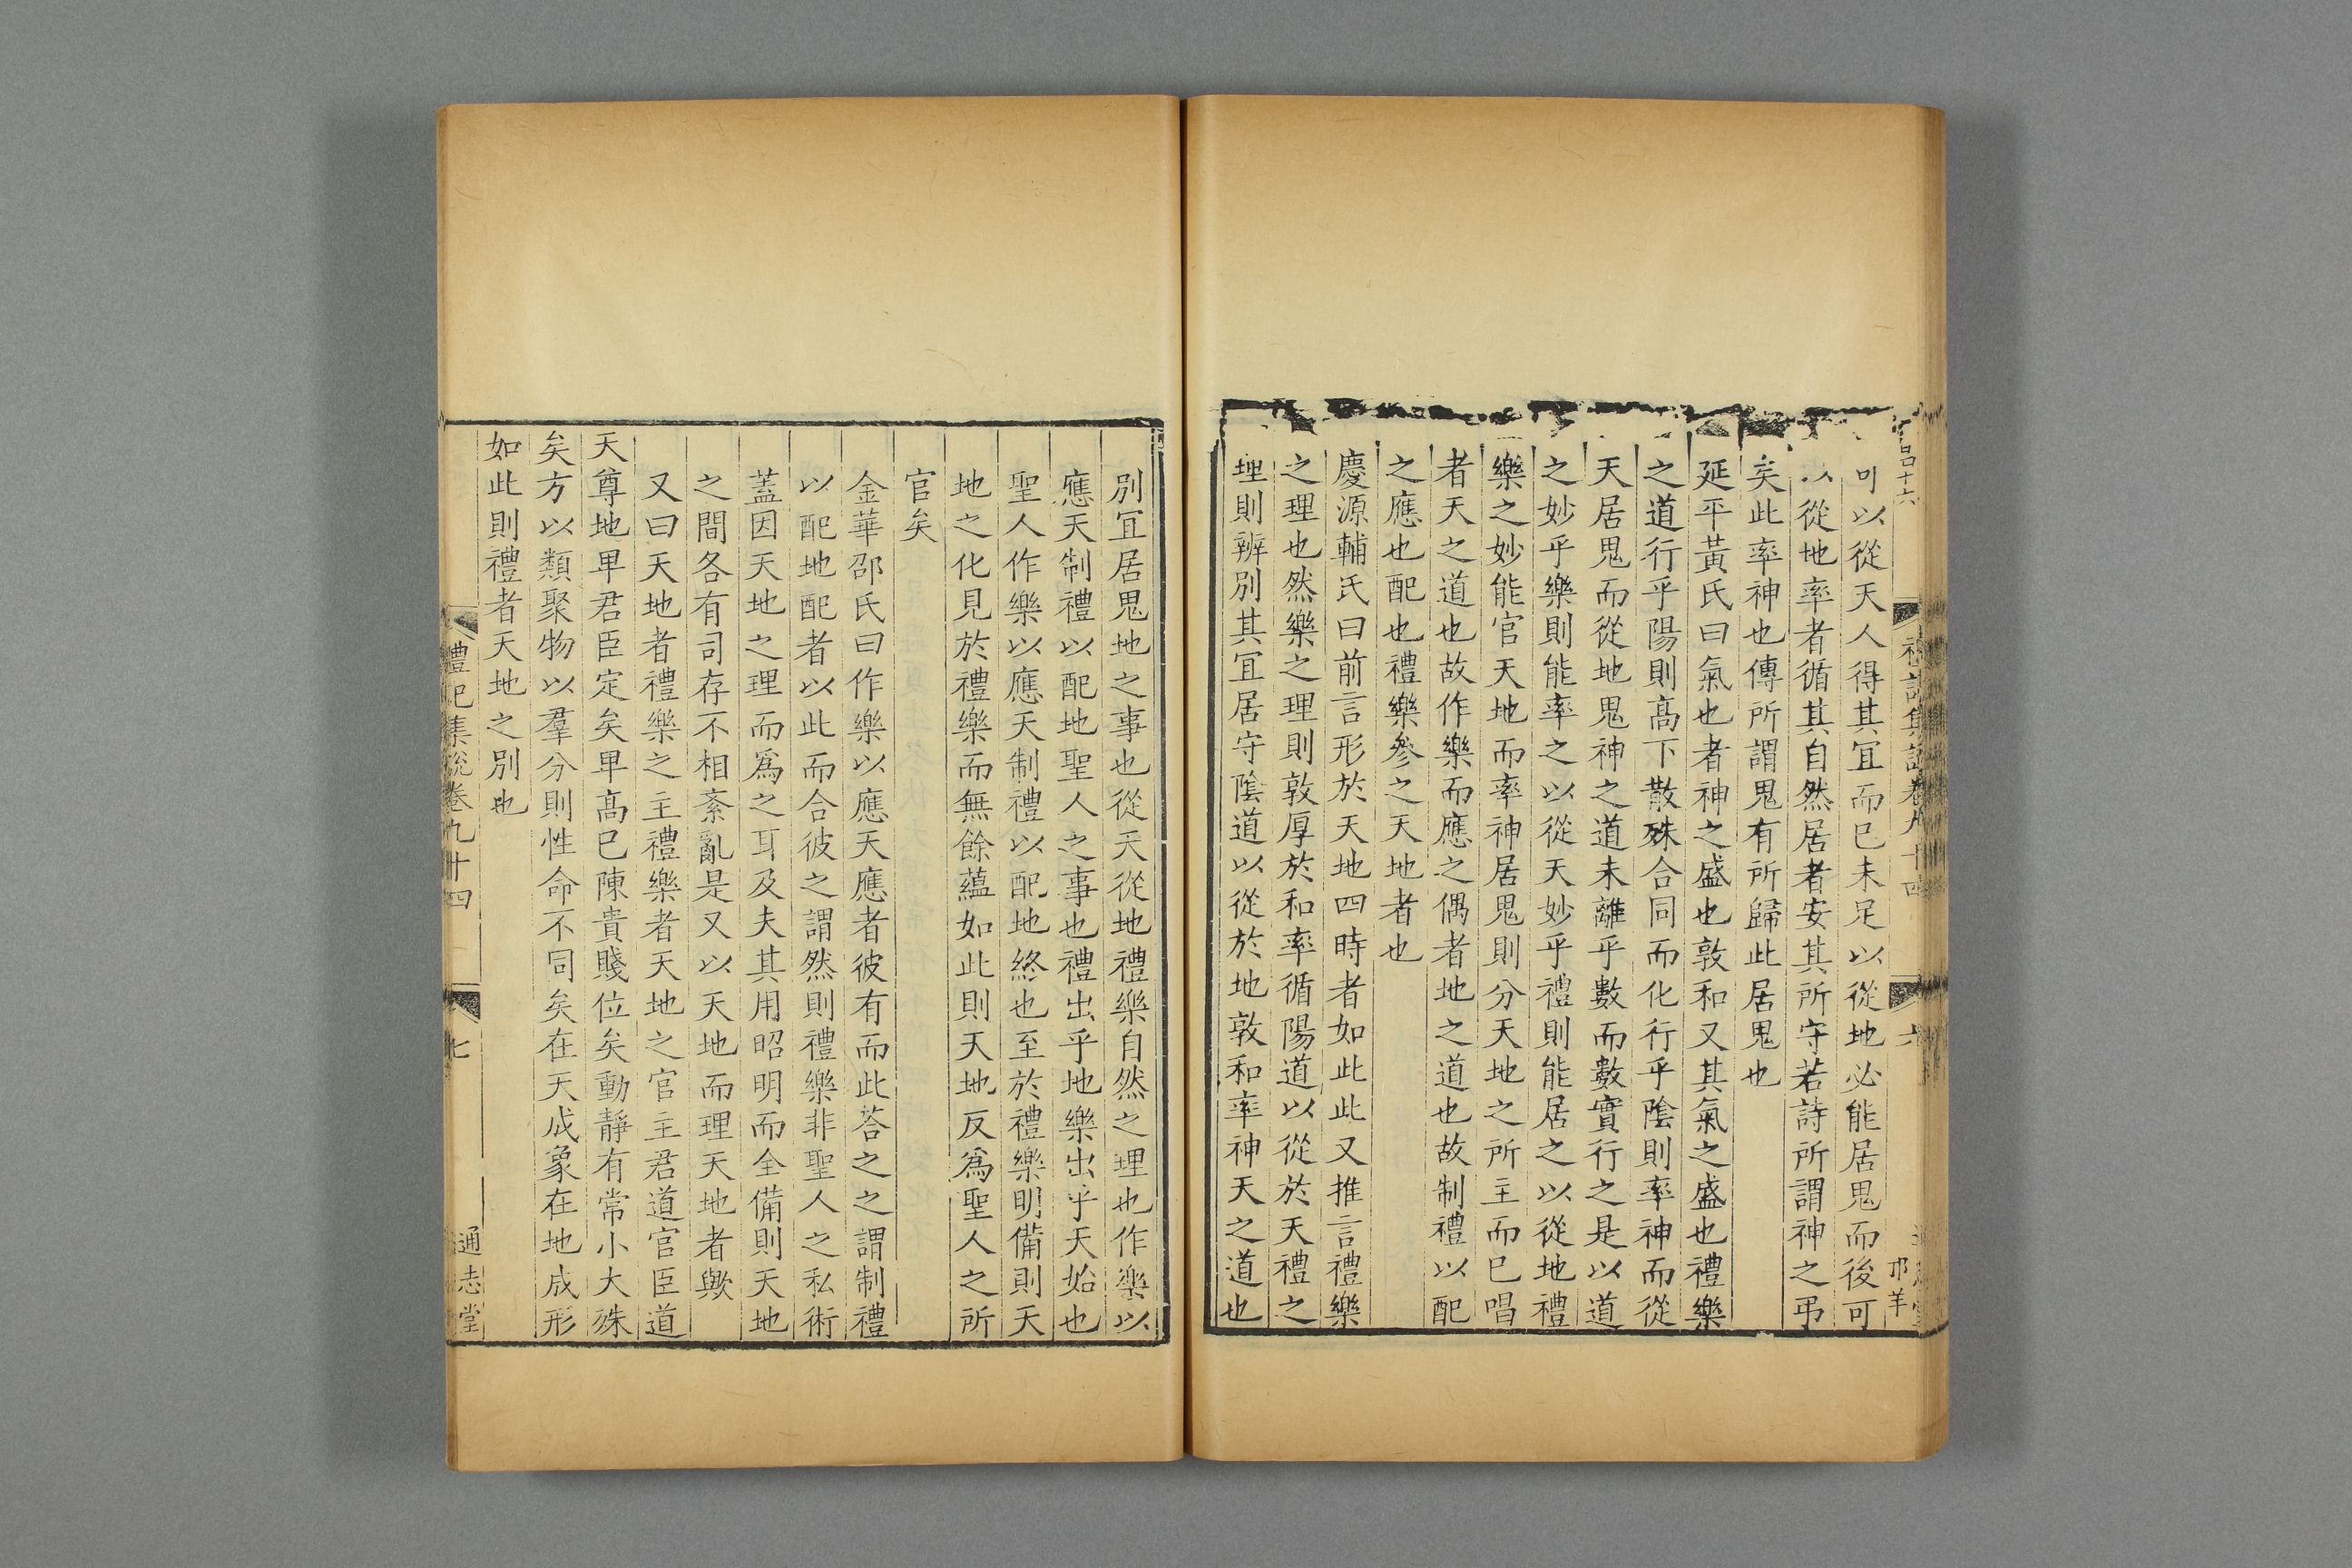 吕十六
可以從天人得其冝而已未足以從地必能居鬼而後可
以從地率者循其自然居者安其所守若詩所謂神之弔
矣此率神也傳所謂鬼有所歸此居鬼也
延平黃氏曰氣也者神之盛也敦和又其氣之盛也禮樂
之道行乎陽則髙下散殊合同而化行乎隂則率神而從
天居鬼而從地鬼神之道未離乎數而數實行之是以道
之妙乎樂則能率之以從天妙乎禮則能居之以從地禮
樂之妙能官天地而率神居鬼則分天地之所主而已唱
者天之道也故作樂而應之偶者地之道也故制禮以配
之應也配也禮樂參之天地者也
慶源輔氏曰前言形於天地四時者如此此又推言禮樂
之理也然樂之理則敦厚於和率循陽道以從於天禮之
理則辨別其冝居守隂道以從於地敦和率神天之道也
別冝居鬼地之事也從天從地禮樂自然之理也作樂以
應天制禮以配地聖人之事也禮出乎地樂出乎天始也
聖人作樂以應天制禮以配地終也至於禮樂明備則天
地之化見於禮樂而無餘蘊如此則天地反爲聖人之所
官矣
金華邵氏曰作樂以應天應者彼有而此荅之之謂制禮
以配地配者以此而合彼之謂然則禮樂非聖人之私術
蓋因天地之理而爲之耳及夫其用昭明而全備則天地
之間各有司存不相紊亂是又以天地而理天地者歟
又曰天地者禮樂之主禮樂者天地之官主君道官臣道
天尊地卑君臣定矣卑髙已陳貴賤位矣動靜有常小大殊
矣方以類聚物以羣分則性命不同矣在天成象在地成形
如此則禮者天地之別也
禮記集説卷九十四
七
通志堂